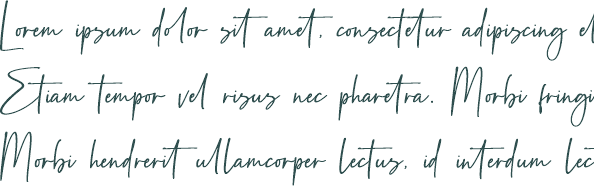 Lorem ipsum dolor sit amet, consectetur adipiscing el
Etiam tempor vel risus nec pharetra. Morbi fringi
Morbi hendrerit ullamcorper lectus, id interdum lec